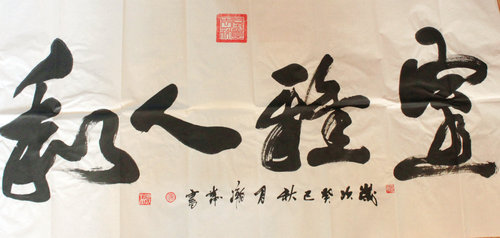 室雅人和
歲次癸巳秋月書